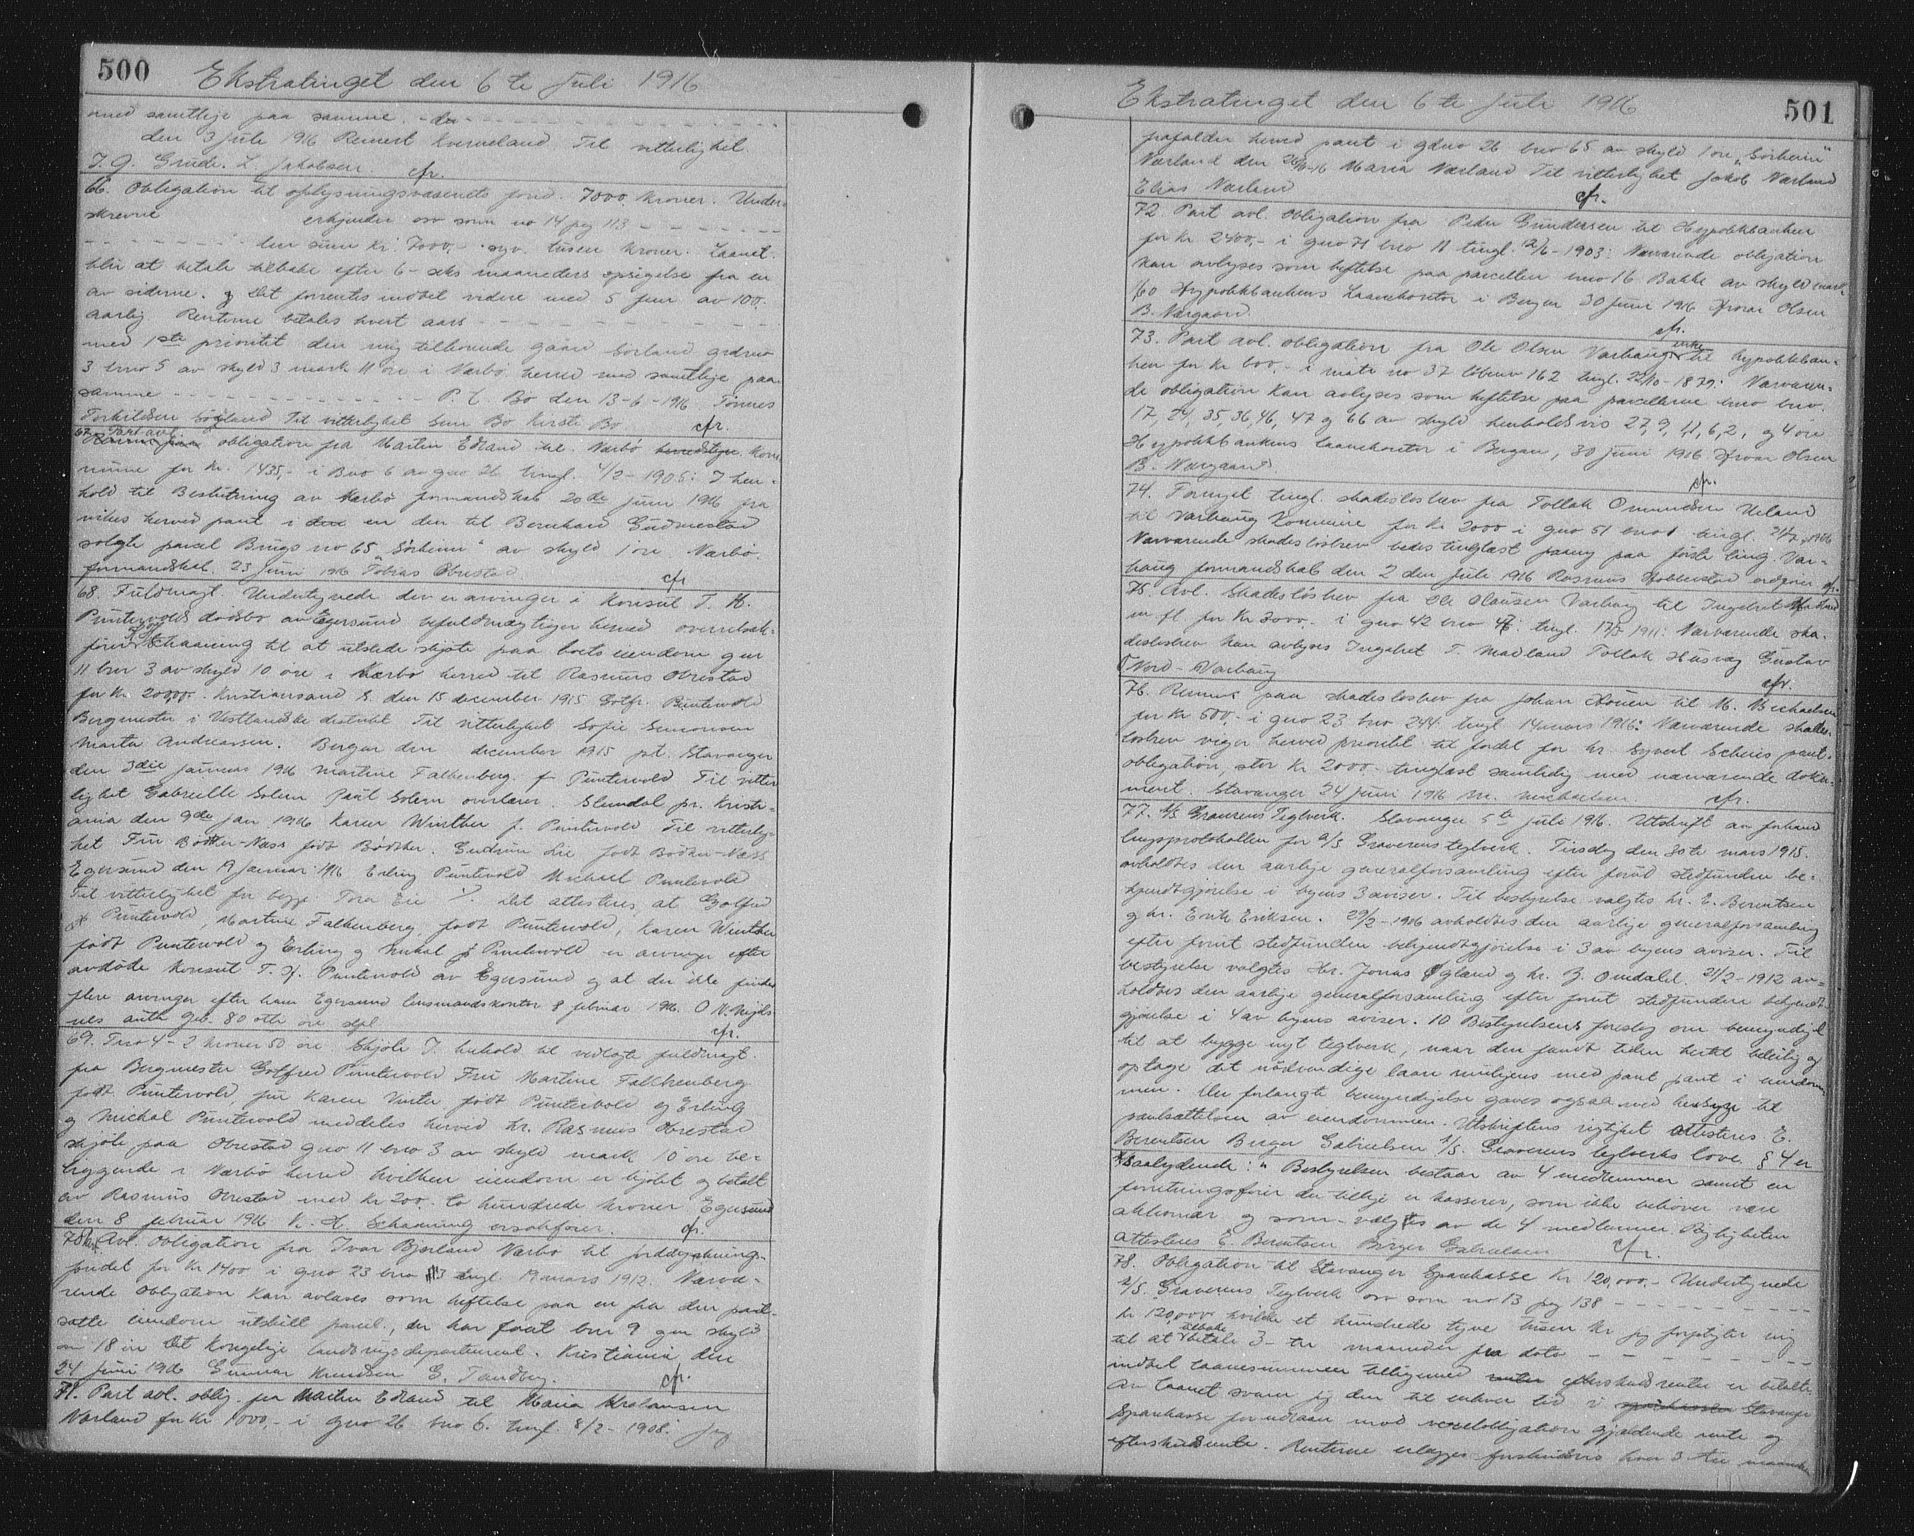 500
Ekstratinget den 6te Juli 1916
med samtlige paa samme. - der
den 3 Juli 1916 Reinert Kverneland. Til vitterlighet.
T. G. Grude. L. Jakobsen. cfr.
66. Obligation til oplysningsvæsenets fond. 7000 kroner. Under-
skrevne erkjender osv som no 14 pag 113
len sum kr 7000,- syv tusen kroner. Laanet
blir at betale tilbake efter 6 - seks maaneders opsigelse fra en
av siderne. og Det forrentes indtil videre med 5 % av 100.
aarlig Renterne betales hvert aars
med 1ste prioritet den mig tilhörende gaard Sörland grdno
3 bno 5 av skyld 3 mark 11 öre i Nærbö herred med samtlige paa
samme P. t. Bö den 13-6-1916 Tönnes
Torkildsen Til vitterlighet Kirsti Bö. cfr.
67. Part avl. obligation fra Martin Edland til Nærbö kom-
mune for kr. 1435,- i Bno 6 av gno 26 tingl. 4/2-1905: I hen-
hold til Beslutning av Nærbö formandskab 20de juni 1916 fra
vikes herved pant i en den til Bernhard Gudmestad
solgte parcel Brugs no 65 "Sörheim" av skyld 1 öre. Nærbö
formandskab. 23 juni 1916 Tobias Obrestad cfr
68. Fuldmagt. Undertegnede der er arvinger i konsul T. H.
Puntervolds dödsbo av Egersund befuldmægtiger herved overretssak-
förer Schaaning til at utstede skjöte paa boets eiendom gnr
11 bnr 3 av skyld 10 öre i Nærbö herred til Rasmus Obrestad
for kr. 200,00. Kristiansand S. den 15 december 1915 Golfr. Puntervold
Bergmester i Vestlandske distrikt Til vitterlighet Sofie Simonsen
Marta Andreassen. Bergen den december 1915 pt. Stavanger
den 3die januar 1916 Martine Falkenberg. f Puntervold Til vitter
lighet Gabrielle Solem Paul Solem overlærer. Slemdal pr. Kristi-
ania den 9de jan 1916 Karen Winther f. Puntervold Til vitterlig-
het Fru Bødtker-Næss födt Bödtker. Gudrun Lie födt Bödtker-Næss
Egersund den 19 januar 1916 Erling Puntervold Michael Puntervold
Til vitterlighet for begge Tora Eie Det attesteres, at Golfred
Puntervold, Martine Falkenberg, födt Puntervold, Karen Winther
födt Puntervold og Erling og Mikal Puntervold er arvinge efter
avdöde konsul T. H. Puntervold av Egersund og at der ikke findes
flere arvinger efter ham Egersund lensmandskontor 8 februar 1916.
aut. Geb. 80 otti öre cfr.
69. Taxt 4 - 2 kroner 50 öre Skjöte I henhold til vedlagte fuldmagt
fra Bergmester Golfred Puntervold Fru Martine Falkenberg
födt Puntervold fru Karen Vinter födt Puntervold og Erling
og Michal Puntervold meddeles herved hr. Rasmus Obrestad
skjöte paa Obrestad gno 11 bno 3 av skyld mark 10 öre be-
liggende i Nærbö herred hvilken eiendom er kjöbt og betalt
av Rasmus Obrestad med kr 200,- to hundrede kroner Egersund
den 8 februar 1916 K. H. Schaaning orsakförer. cfr.
70. Avl. Obligation fra Ivar Bjorland Nærbö til jorddyrknings-
fondet for kr 1400 i gno 23 bno 113 tingl. 19 mars 1912. Nærvæ-
rende Obligation kan avlæses som heftelse paa en fra den pant-
satte eiendom utskilt parcel, der har faat bnr 9 gnr skyld
om 18 öre Det kongelige landbruksdepartement. Kristiania den
24 juni 1916 Gunnar Knudsen G. Tandberg. cfr.
71. Part avl. oblig. fra Martin Edland til Maria
Nærland for kr 1000,- i gno 26 bno 6. tingl 8/2-1908. Jeg
501
Ekstratinget den 6te Juli 1916
frafalder herved pant i gdno 26 bno 65 av skyld 1 öre "Sörheim"
Nærland den Maria Nærland Til vitterlighet Jakob Nærland
Elias Nærland cfr.
72. Part avl. obligation fra Peder Gundersen til Hypotekbanken
for kr 2400,- i gno 71 bno 11 tingl. 12/6-1903: Nærværende obligation
kan avlyses som heftelse paa parcellen bno 16 Bakke av skyld mark
/60 Hypotekbankens laanekontor i Bergen 30 juni 1916 Hroar Olsen
B. Nergaard cfr.
73. Part avl. obligation fra Ole Olsen Varhaug til Hypotekban-
ken for kr 600,- i matr no 37 löbenr 162 tingl. 22/10-1879: Nærværen-
de obligation kan avlyses som heftelse paa parcellerne bno
17, 24, 35, 36, 46, 47 og 66 av skyld henholdsvis 27, 9, 11, 6, 2, og 4 öre
Hypotekbankens laanekontor i Bergen, 30 juni 1916 Hroar Olsen
B. Nergaard. cfr.
74. Fornyet tingl. skadeslösbrev fra Tollak Omundsen Ueland
til Varhaug kommune for kr 2000 i gno 51 bno 1 tingl.
Nærværende skadeslösbrev bedes tinglæst paany paa förste ting. Var-
haug formandskab den 2 den juli 1916 Rasmus Hobberstad ordförer cfr.
75. Avl. Skadeslösbrev fra Ole Olausen Varhaug til Ingebret Madland
m. fl. for kr 3000,- i gno 42 bno 47. tingl. 1911: Nærværende ska-
deslösbrev kan avlyses Ingebret T. Madland Tollak Husvæg Gustav
Nord-Varhaug cfr.
76. Remise paa skadeslösbrev fra Johan Houen til M. Michaelsen
for kr 500,- i gno 23 bno 244 tingl. 14 mars 1916: Nærværende skades-
lösbrev viger herved prioritet til fordel for hr. Syvert Scheies pant-
obligation, stor kr 2000 tinglæst samtidig med nærværende doku-
ment. Stavanger 24 juni 1916 M. Michaelsen cfr.
77. A/S Graverens Teglverk. Stavanger 5te juli 1916. Utskrift av forhand
lingsprotokollen for A/S Graverens teglverk. Tirsdag den 30te mars 1915.
avholdtes den aarlige generalforsamling efter forut stedfunden be-
kjendtgjörelse i byens 3 aviser. Til bestyrelse valgtes hr. E. Berentsen
og hr. Erik Eriksen. 29/2-1916 avholdtes den aarlige generalforsamling
efter forut stedfunden bekjendtgjörelse i 3 av byens aviser. Til
bestyrelse valgtes Hr. Jonas Øglænd og hr. J. Omdahl. 21/2-1912 av-
holdtes den aarlige generalforsamling efter forut stedfunden bekjendt-
gjörelse i 4 av byens aviser. 10 Bestyrelsens forslag om bemyndigel
til at bygge nyt teglverk, naar den fandt tiden hertil beleilig og
optage det nödvendige laan muligens med pant pant i eiendom
men. Den forlangte bemyndigelse gaves ogsaa med hensyn til
pantsættelsen av eiendommen. Utskriftens rigtighet attesteres E.
Berentsen Birger Gabrielsen A/S Graverens teglverks love § 4 er
saalydende: "Bestyrelsen bestaar av 4 medlemmer samt en
forretningsförer der tillige er kasserer, som ikke behöver være
aktionær og som vælges av de 4 medlemmer. Rigtigheten
attesteres E. Berentsen Birger Gabrielsen cfr.
78. Obligation til Stavanger Sparekasse Kr 120,000,- Undertegnede
A/S Graverens Teglverk osv som no 13 pag 138
kr 120,000 hvilke et hundrede tyve tusen kr jeg forpligter mig
til at tilbake betale 3 - tre maaneder fra dato
indtil laanesummen tilligemed efterskudsrente er betalte
Av laanet svarer jeg den til enhver tid i Stavanger
Sparekasse for utlaan mod vexelobligation gjældende rente og
efterskudsrente. Renterne erlægges forskudsvis hver 3 tre maaneder